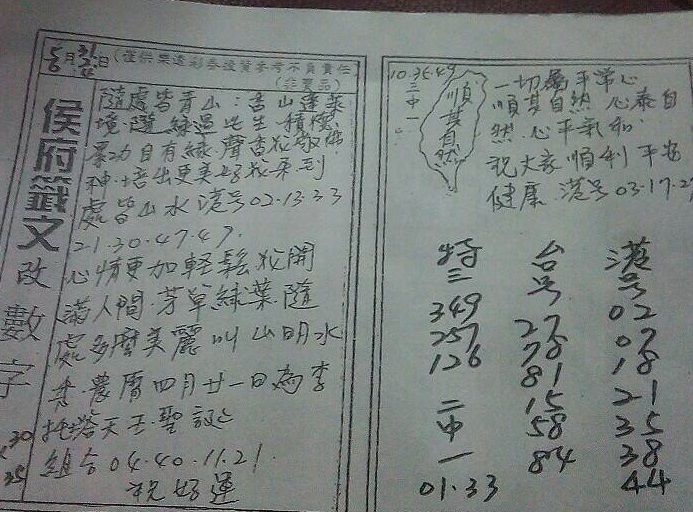 5月31日(僅供票選彩券投資參考不負責任)
(非賣品)
侯府籤文
改數字
隨處皆青山:吉山蓬萊
境隨緣過此生 積極
自有緣 聲香
神 培出更美 到
處皆山水 港号02.13.33
21.30.47.49.
心情更加輕鬆 花開
滿人間.芳草綠葉.隨
處多麼美麗 山明水
秀.農曆四月廿一日為李
托塔天王.聖誕
組合04.40.11.21.
祝好運
30
35
10.35.49
三中一
順其自然
一切屬平常心
順其自然 心泰自
然.心平氣和.
祝大家順利平安
健康.港号03.17.27
特三
349
257
126
二中一
01.33
台号
27
78
81
15
58
84
港号
02
07
18
21
35
38
44